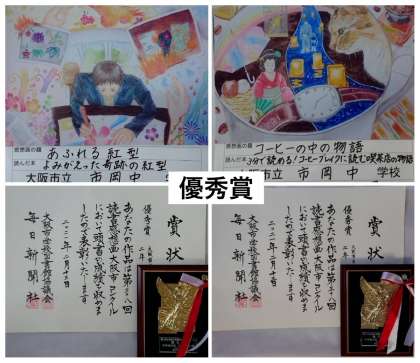 感想画の題
あふれる紅型
読んだ本
よみがえった奇跡の紅型
大阪市立 市岡中
感想画の題
コーヒーの中の物語
読んだ本
3分で読める!コーヒーブレイクに読む喫茶店の物語
大阪市立 市岡中 学校
優秀賞
賞状
優秀賞
あなたの作品は第三十八回
読書感想画大阪市コンクール
において頭書の成績を収めま
したので表彰いたします
二〇二二年二月十二日
大阪市学校図書館協議会
毎日新聞社
賞状
優秀賞
あなたの作品は第三十八回
読書感想画大阪市コンクール
において頭書の成績を収めま
したので表彰いたします
大阪市学校図書館協議会
毎日新聞社